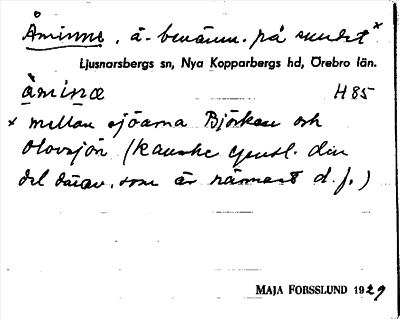 Åminne, å-benämn. på sundet ×
Ljusnarsbergs sn, Nya Kopparbergs hd, Örebro län.
åminæ H 85
× mellan sjöarna Björken och
Olovsjön (kanske egentl. den
del därav, som är närmast d. f.)
MAJA FORSSLUND 1929